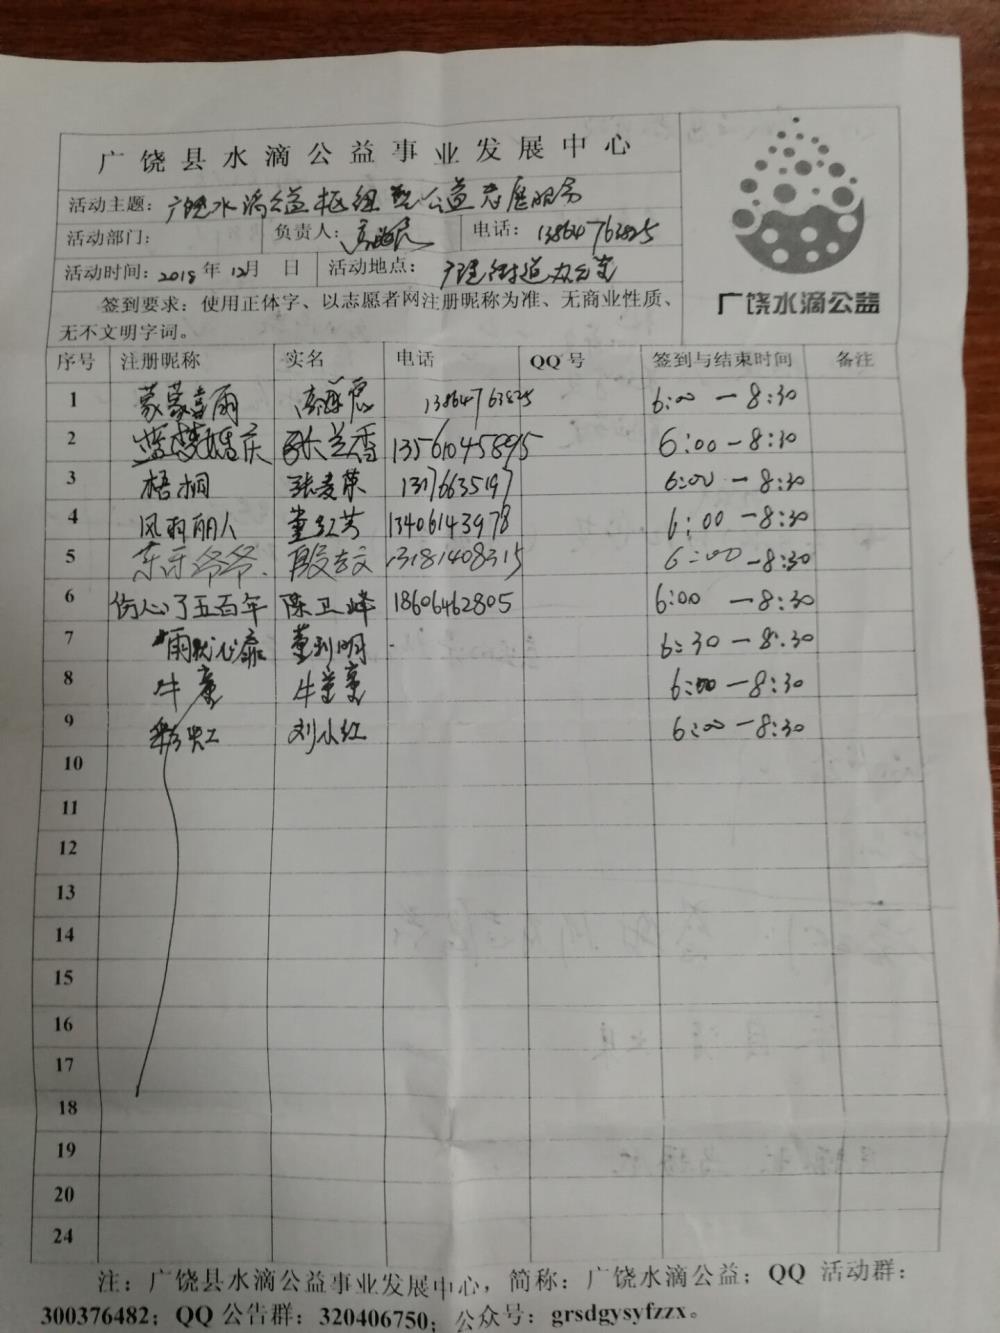 广饶县水滴公益事业发展中心
活动主题：广饶水滴公益枢纽型公益志愿服务
活动部门： 负责人： 电话：13864763825
活动时间：2018年12月 日 活动地点：街道办
签到要求：使用正体字、以志愿者网注册昵称为准、无商业性质、
无不文明字词。
广饶水滴公益
序号 注册昵称 实名 电话 QQ号 签到与结束时间 备注
1 蒙蒙喜雨 13864763825 6:00 — 8:30
2 蓝梦婚庆 张兰香 13561045895 6:00 — 8:30
3 梧桐 13176635197 6:00 — 8:30
4 风雨丽人 董红芳 13406143978 6:00 — 8:30
5 东东爷爷 13181408315 6:00 — 8:30
6 伤心了五百年 陈卫峰 18606462805 6:00 — 8:30
7 董利明 6:30 — 8:30
8 牛董 牛董董 6:00 — 8:30
9 彩虹 刘小红 6:00 — 8:30
10
11
12
13
14
15
16
17
18
19
20
24
注：广饶县水滴公益事业发展中心，简称：广饶水滴公益；QQ 活动群：
300376482；QQ公告群：320406750；公众号：grsdgysyfzzx。